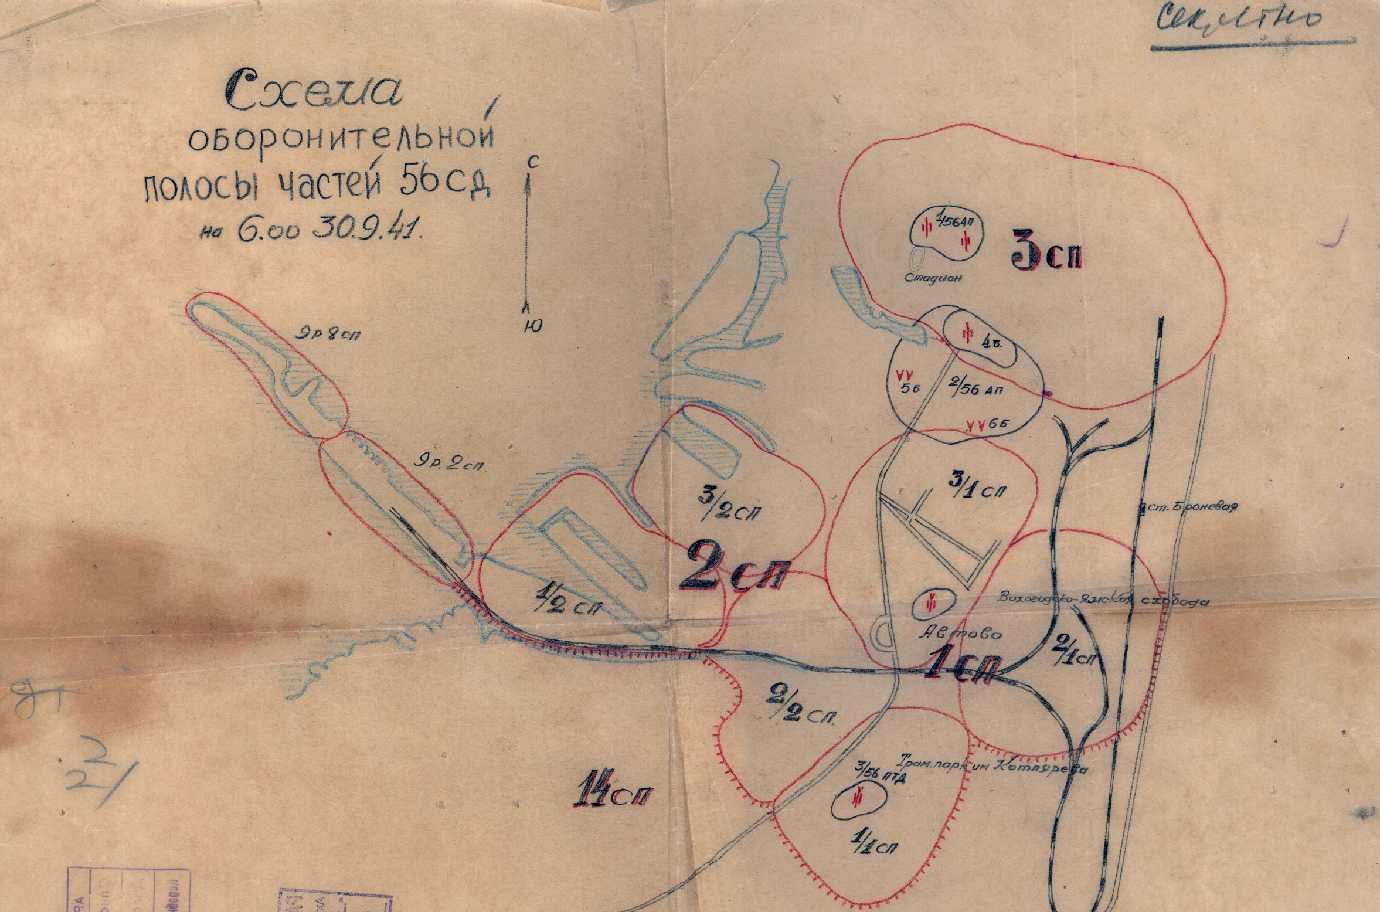 Секретно
Схема
оборонительной
полосы частей 56 сд
на 6.00 30.9.41.
С
Ю
1/56 АП
3 сп
Стадион
9 р 2 сп
4 б.
5 б
2/56 АП
6 б
9 р. 2 сп
3/2 сп
3/1 сп
ст. Броневая
2 сп
1/2 сп
Вологодско-Ямская слобода
Автово
2/1 сп
1 сп
2/2 сп.
Трам. парк им Котлярова
3/56 ПТД
14 сп
1/1 сп